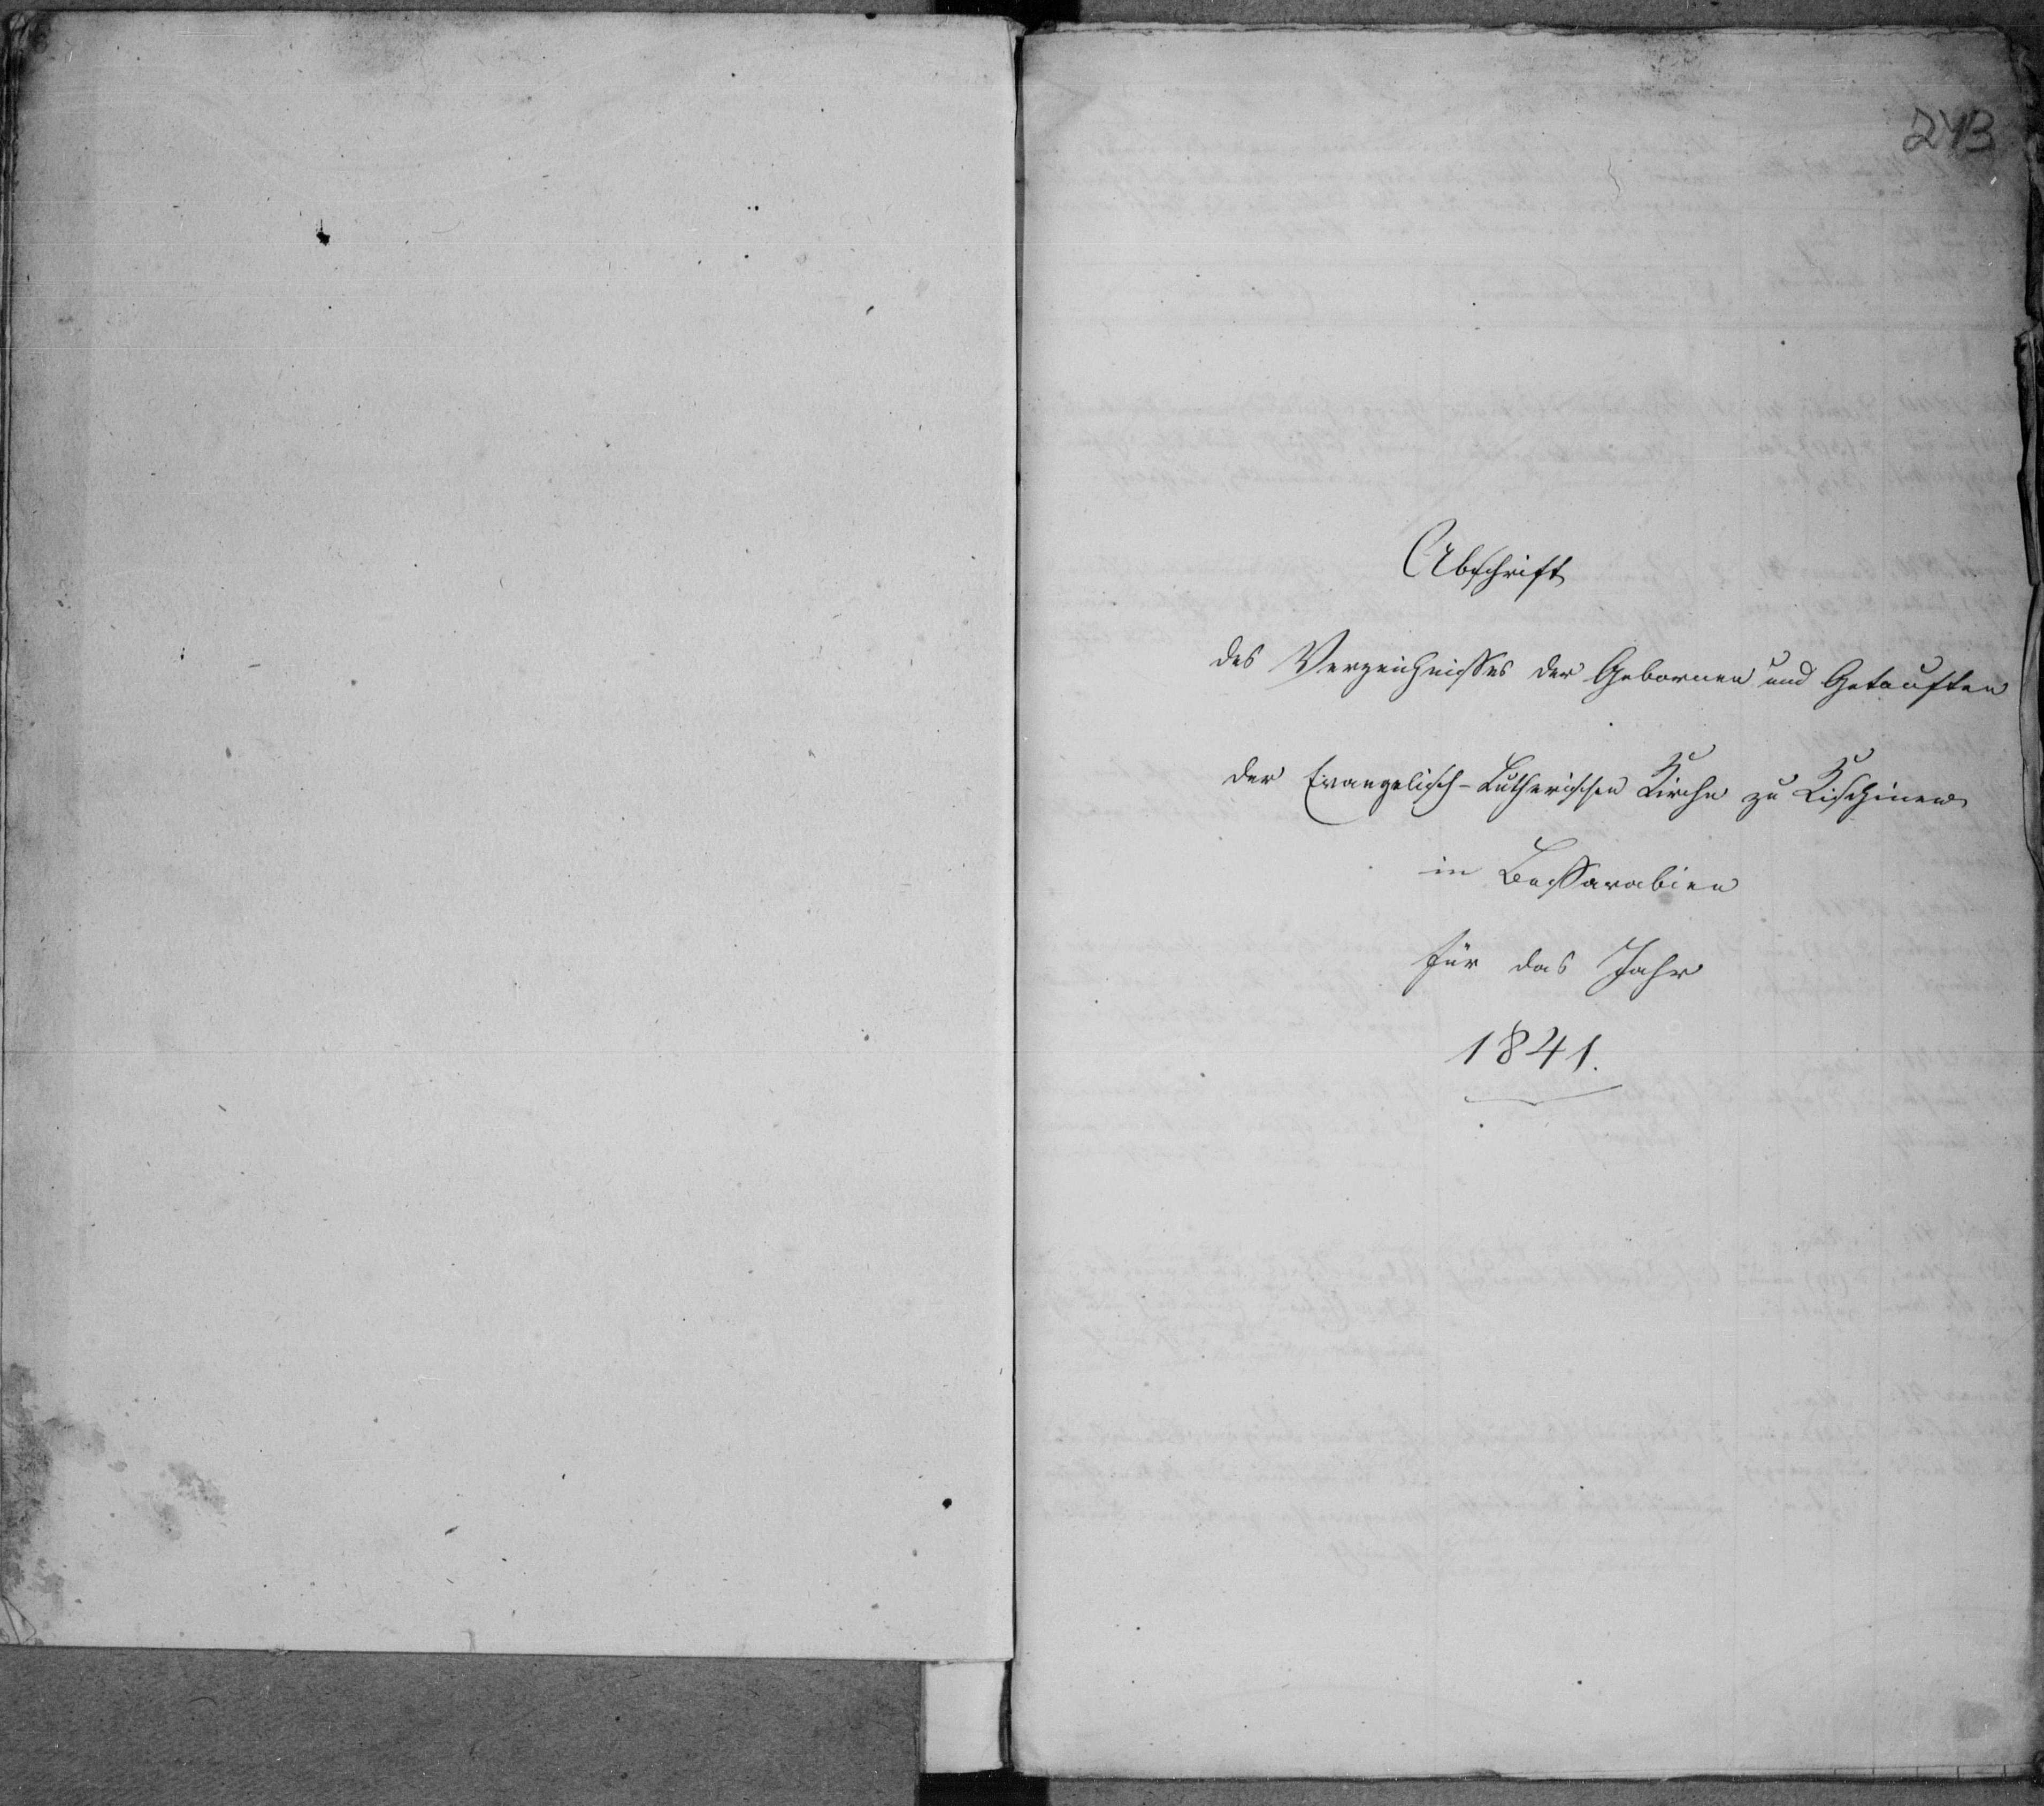 243
Abschrift
des Verzeichnisses der Gebornen und Getauften
der Evangelisch-Lutherischen Kirche zu Kischinew
in Bessarabien
für das Jahr
1841.